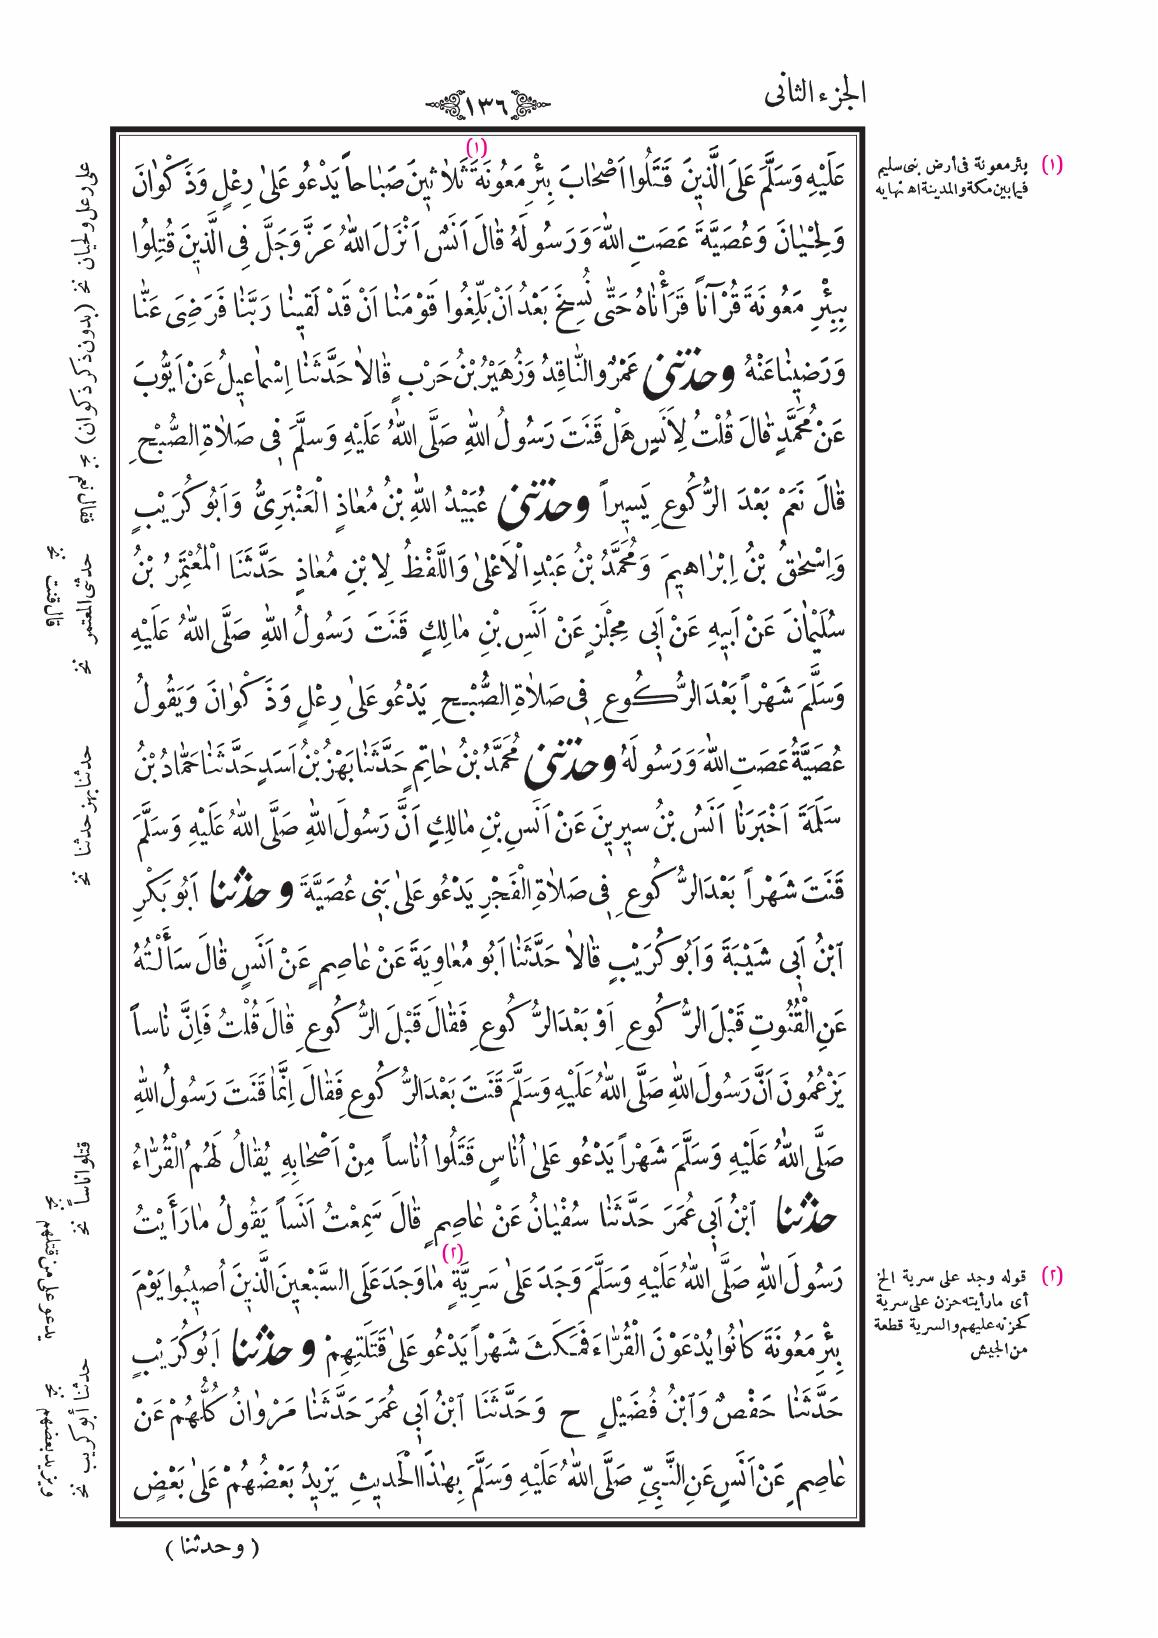 الجزء الثانى
١٣٦
(١)
عَلَيْهِ وَسَلَّمَ عَلَى الَّذِينَ قَتَلُوا اَصْحٰابَ بِئْرِ مَعُونَةَ ثَلاٰثِينَ صَبَاحاً يَدْعُو عَلىٰ رِعْلٍ وَذَكْوٰانَ
وَلِحْيٰانَ وَعُصَيَّةَ عَصَتِ اللّٰهَ وَرَسُولَهُ قٰالَ اَنَسٌ اَنْزَلَ اللّٰهُ عَزَّ وَجَلَّ فِى الَّذِينَ قُتِلُوا
بِبِئْرِ مَعُونَةَ قُرْآناً قَرَأْنٰاهُ حَتّٰى نُسِخَ بَعْدُ اَنْ بَلِّغُوا قَوْمَنٰا اَنْ قَدْ لَقِينٰا رَبَّنٰا فَرَضِىَ عَنّٰا
وَرَضِينٰا عَنْهُ وحدثنى عَمْرٌو النّٰاقِدُ وَزُهَيْرُ بْنُ حَرْبٍ قٰالاٰ حَدَّثَنٰا اِسْمٰاعِيلُ عَنْ اَيُّوبَ
عَنْ مُحَمَّدٍ قٰالَ قُلْتُ لِاَنَسٍ هَلْ قَنَتَ رَسُولُ اللّٰهِ صَلَّى اللّٰهُ عَلَيْهِ وَسَلَّمَ فِى صَلاٰةِ الصُّبْحِ
قٰالَ نَعَمْ بَعْدَ الرُّكُوعِ يَسِيراً وحدثنى عُبَيْدُ اللّٰهِ بْنُ مُعٰاذٍ الْعَنْبَرِىُّ وَاَبُو كُرَيْبٍ
وَاِسْحٰقُ بْنُ اِبْرٰاهِيمَ وَمُحَمَّدُ بْنُ عَبْدِ الْاَعْلىٰ وَاللَّفْظُ لِابْنِ مُعٰاذٍ حَدَّثَنَا الْمُعْتَمِرُ بْنُ
سُلَيْمٰانَ عَنْ اَبِيهِ عَنْ اَبِى مِجْلَزٍ عَنْ اَنَسِ بْنِ مٰالِكٍ قَنَتَ رَسُولُ اللّٰهِ صَلَّى اللّٰهُ عَلَيْهِ
وَسَلَّمَ شَهْراً بَعْدَ الرُّكُوعِ فِى صَلاٰةِ الصُّبْحِ يَدْعُو عَلىٰ رِعْلٍ وَذَكْوٰانَ وَيَقُولُ
عُصَيَّةُ عَصَتِ اللّٰهَ وَرَسُولَهُ وحدثنى مُحَمَّدُ بْنُ حٰاتِمٍ حَدَّثَنٰا بَهْزُ بْنُ اَسَدٍ حَدَّثَنٰا حَمّٰادُ بْنُ
سَلَمَةَ اَخْبَرَنٰا اَنَسُ بْنُ سِيرِينَ عَنْ اَنَسِ بْنِ مٰالِكٍ اَنَّ رَسُولَ اللّٰهِ صَلَّى اللّٰهُ عَلَيْهِ وَسَلَّمَ
قَنَتَ شَهْراً بَعْدَ الرُّكُوعِ فِى صَلاٰةِ الْفَجْرِ يَدْعُو عَلىٰ بَنِى عُصَيَّةَ وحدثنا اَبُو بَكْرِ
ابْنُ اَبِى شَيْبَةَ وَاَبُو كُرَيْبٍ قٰالاٰ حَدَّثَنٰا اَبُو مُعٰاوِيَةَ عَنْ عٰاصِمٍ عَنْ اَنَسٍ قٰالَ سَأَلْتُهُ
عَنِ الْقُنُوتِ قَبْلَ الرُّكُوعِ اَوْ بَعْدَ الرُّكُوعِ فَقٰالَ قَبْلَ الرُّكُوعِ قٰالَ قُلْتُ فَاِنَّ نٰاساً
يَزْعُمُونَ اَنَّ رَسُولَ اللّٰهِ صَلَّى اللّٰهُ عَلَيْهِ وَسَلَّمَ قَنَتَ بَعْدَ الرُّكُوعِ فَقٰالَ اِنَّمٰا قَنَتَ رَسُولُ اللّٰهِ
صَلَّى اللّٰهُ عَلَيْهِ وَسَلَّمَ شَهْراً يَدْعُو عَلىٰ اُنٰاسٍ قَتَلُوا اُنٰاساً مِنْ اَصْحٰابِهِ يُقٰالُ لَهُمُ الْقُرّٰاءُ
حدثنا ابْنُ اَبِى عُمَرَ حَدَّثَنٰا سُفْيٰانُ عَنْ عٰاصِمٍ قٰالَ سَمِعْتُ اَنَساً يَقُولُ مٰا رَأَيْتُ
(٢)
رَسُولَ اللّٰهِ صَلَّى اللّٰهُ عَلَيْهِ وَسَلَّمَ وَجَدَ عَلىٰ سَرِيَّةٍ مٰا وَجَدَ عَلَى السَّبْعِينَ الَّذِينَ اُصِيبُوا يَوْمَ
بِئْرِ مَعُونَةَ كٰانُوا يُدْعَوْنَ الْقُرّٰاءَ فَمَكَثَ شَهْراً يَدْعُو عَلىٰ قَتَلَتِهِمْ وحدثنا اَبُو كُرَيْبٍ
حَدَّثَنٰا حَفْصٌ وَابْنُ فُضَيْلٍ ح وَحَدَّثَنَا ابْنُ اَبِى عُمَرَ حَدَّثَنٰا مَرْوٰانُ كُلُّهُمْ عَنْ
عٰاصِمٍ عَنْ اَنَسٍ عَنِ النَّبِىِّ صَلَّى اللّٰهُ عَلَيْهِ وَسَلَّمَ بِهٰذَا الْحَدِيثِ يَزِيدُ بَعْضُهُمْ عَلىٰ بَعْضٍ
( وحدثنا )
(١) بئر معونة فى أرض بنى سليم
فيما بين مكة والمدينة اه نهايه
(٢) قوله وجد على سرية الخ
أى ما رأيته حزن على سرية
كحزنه عليهم والسرية قطعة
من الجيش
على رعل ولحيان نخ (بدون ذكر ذكوان)
حدثنى المعتمر نخ
قال قنت نخ
حدثنا بهز حدثنا نخ
قتلوا اناساً نخ
يدعو على من قتلهم نخ
حدثنا أبو كريب نخ
ويزيد بعضهم نخ